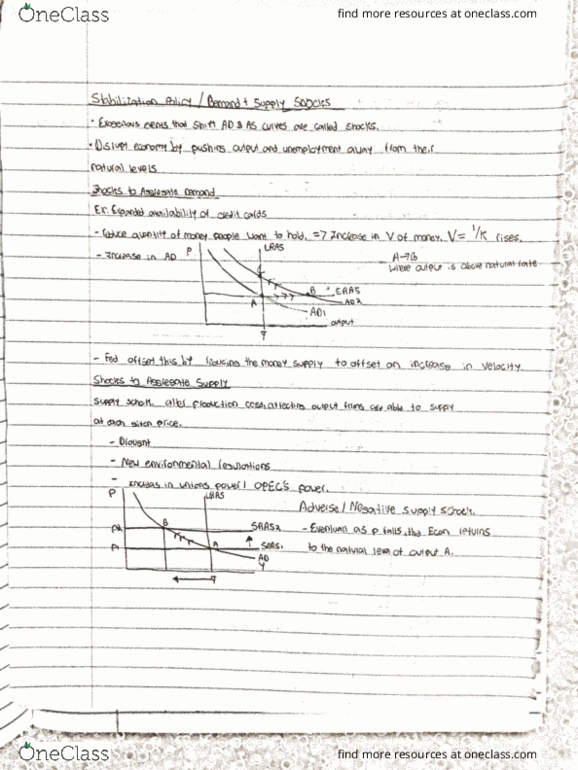 OneClass
find more resources at oneclass.com
Stabilization Policy / Demand + Supply Shocks
• Exogenous events that shift AD & AS curves are called shocks.
• Disrupt economy by pushing output and unemployment away from their
natural levels
Shocks to Aggregate Demand
Ex: Expanded availability of credit cards
- Reduce quantity of money people want to hold. => Increase in V of money. V = 1/K rises.
- Increase in AD
P
LRAS
A→B
where output is above natural rate
C
B
SRAS
A
AD2
AD1
output
Y
- Fed offset this by reducing the money supply to offset an increase in velocity.
Shocks to Aggregate Supply
Supply shock alter production costs, affecting output firms are able to supply
at each given price.
- Drought
- New environmental regulations
- Increas in unions power / OPEC's power.
P
LRAS
Adverse / Negative supply schock.
P2
B
SRAS2
- Eventuall as p falls, the Econ returns
P1
A
SRAS1
to the natural level of output A.
AD
Y
Y
OneClass
find more resources at oneclass.com